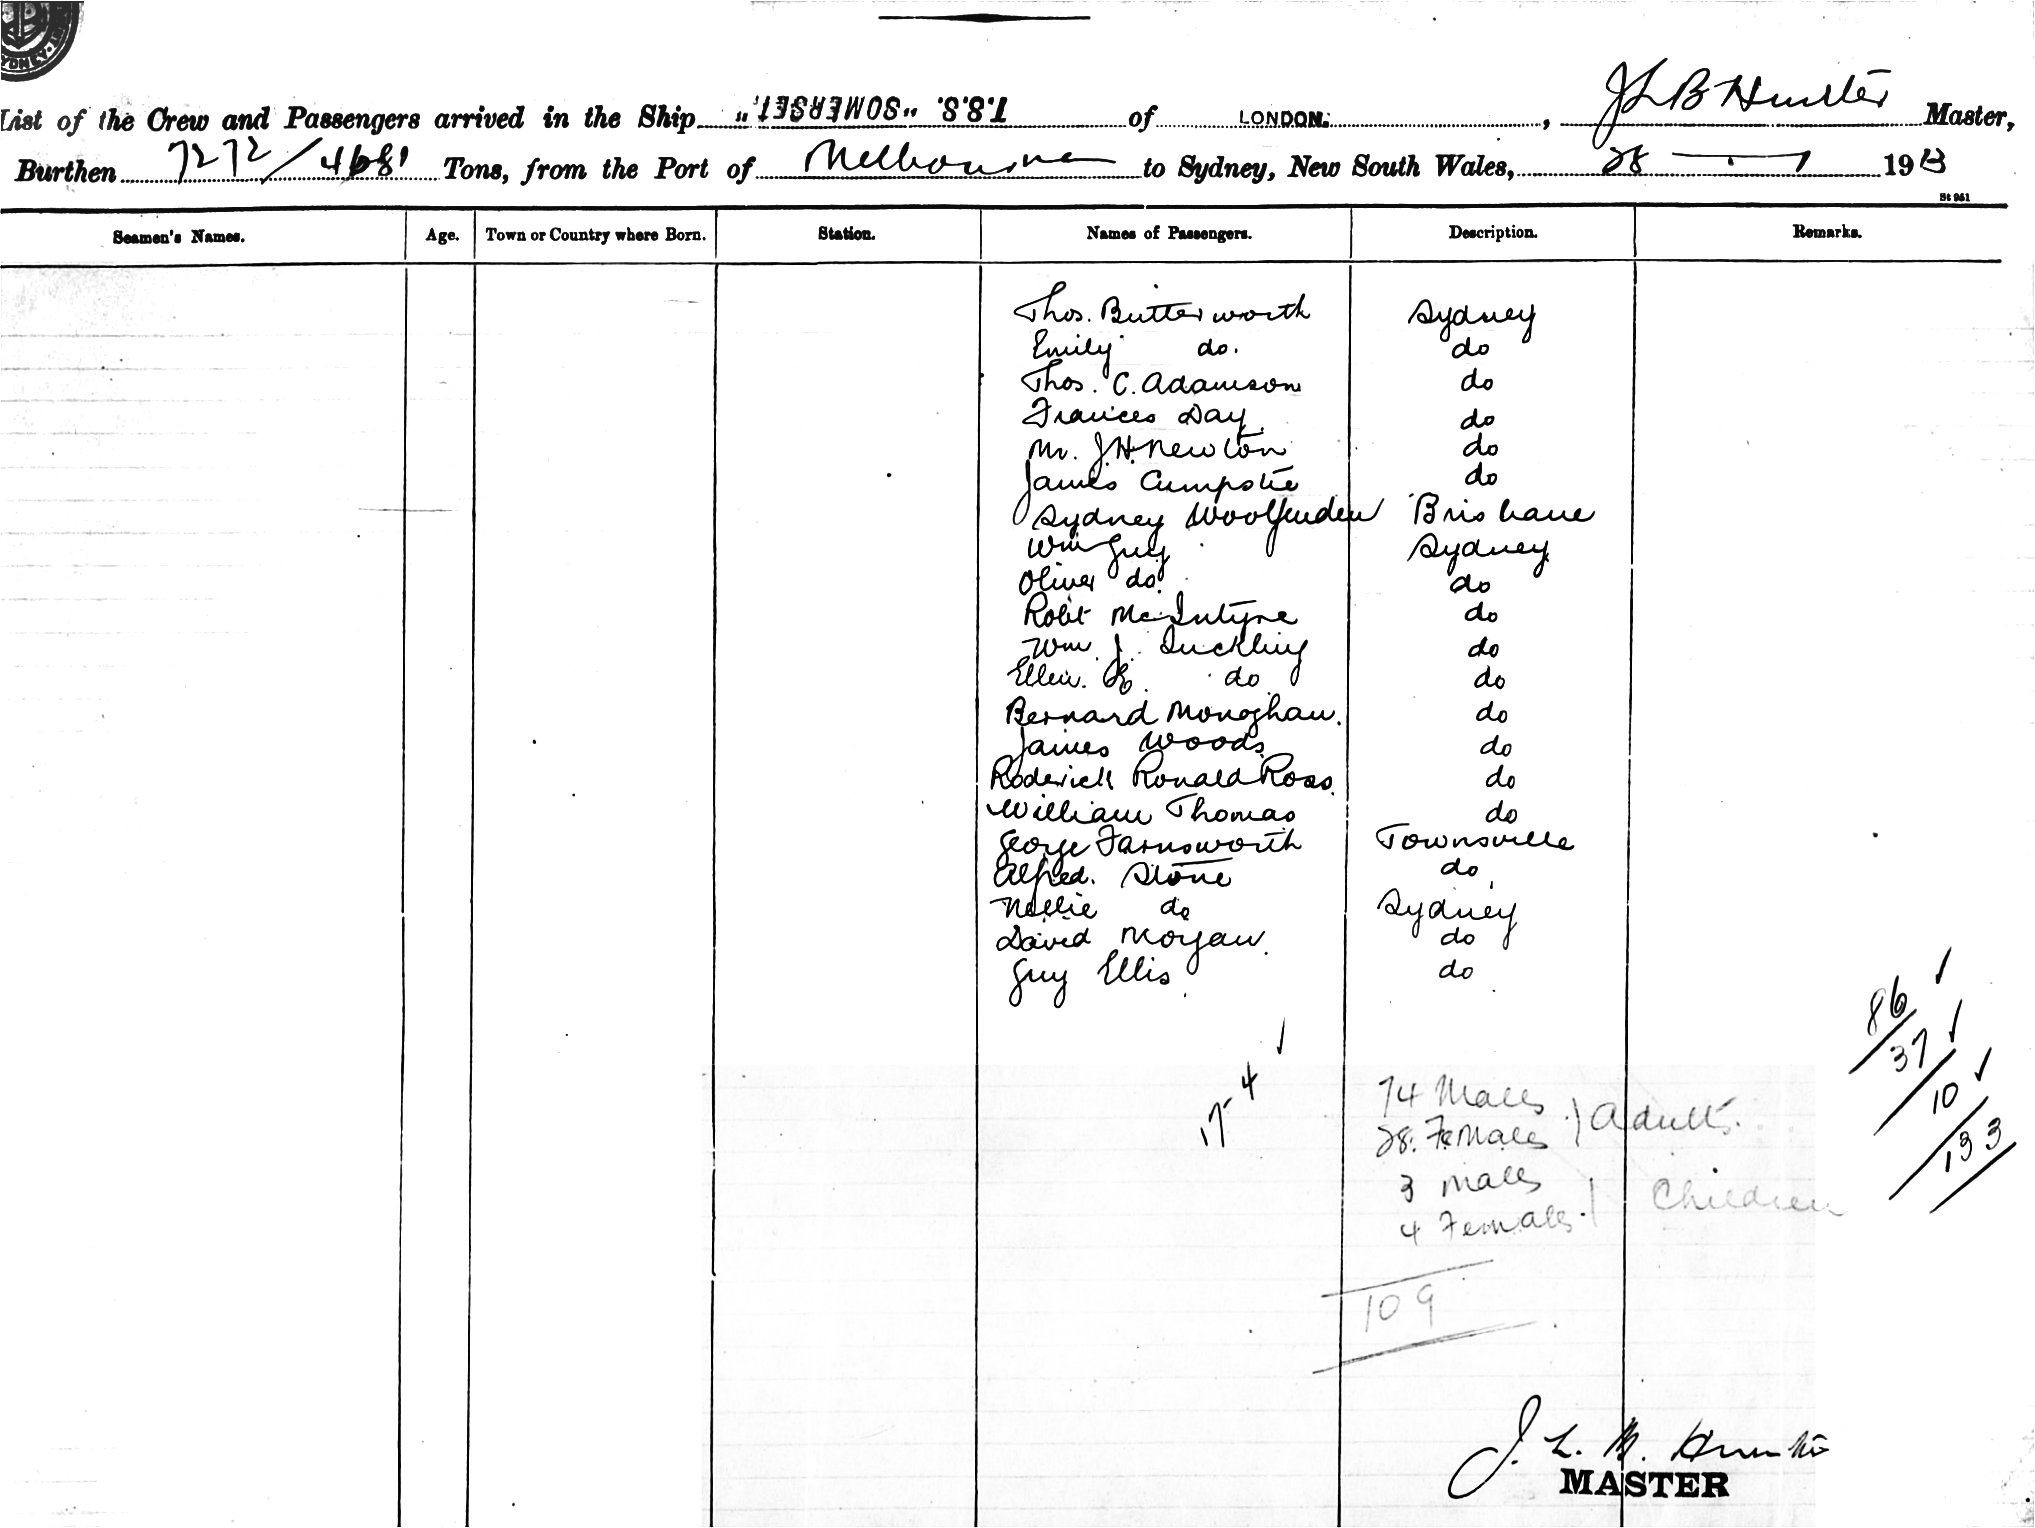 SYDNEY
List of the Crew and Passengers arrived in the Ship T.S.S. "SOMERSET." of LONDON., J L B Hunter Master,
Burthen 7272/4681 Tons, from the Port of Melbourne to Sydney, New South Wales, 28 - 1 1913
St 951
Seamen's Names. Age. Town or Country where Born. Station. Names of Passengers. Description. Remarks.
Thos. Butterworth Sydney
Emily do. do
Thos. C. Adamson do
Frances Day do
Mr. J. H. Newton do
James Cumpstie do
Sydney Woolfenden Brisbane
Wm Guy Sydney
Oliver do. do
Robt McIntyre do
Wm. J. Suckling do
Ellen. E. do do
Bernard Monoghan. do
James Woods. do
Roderick Ronald Ross. do
William Thomas do
George Farnsworth Townsville
Alfred. Stone do
Nellie do Sydney
David Morgan. do
Guy Ellis do
86 ✓
37 ✓
10 ✓
133
17 - 4 ✓
74 Males
28. Females } Adults.
3 Males
4 Females. } Children
109
J. L. B. Hunter
MASTER